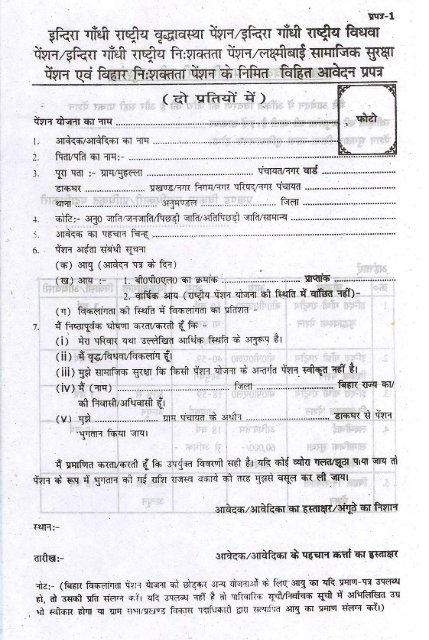 प्रपत्र-1
इन्दिरा गाँधी राष्ट्रीय वृद्धावस्था पेंशन/इन्दिरा गाँधी राष्ट्रीय विधवा
पेंशन/इन्दिरा गाँधी राष्ट्रीय निःशक्तता पेंशन/लक्ष्मीबाई सामाजिक सुरक्षा
पेंशन एवं बिहार निःशक्तता पेंशन के निमित विहित आवेदन प्रपत्र
(दो प्रतियों में)
फोटो
पेंशन योजना का नाम
1. आवेदक/आवेदिका का नाम
2. पिता/पति का नाम:-
3. पूरा पता :- ग्राम/मुहल्ला पंचायत/नगर वार्ड
डाकघर प्रखण्ड/नगर निगम/नगर परिषद्/नगर पंचायत
थाना अनुमण्डल जिला
4. कोटि:- अनु0 जाति/जनजाति/पिछड़ी जाति/अतिपिछड़ी जाति/सामान्य
5. आवेदक का पहचान चिन्ह्
6. पेंशन अर्हता संबंधी सूचना
(क) आयु (आवेदन पत्र के दिन)
(ख) आय :- 1. बी0पी0एल0 का क्रमांक प्राप्तांक
2. वार्षिक आय (राष्ट्रीय पेंशन योजना की स्थिति में वांछित नहीं)-
(ग) विकलांगता की स्थिति में विकलांगता का प्रतिशत -
7. मैं निष्ठापूर्वक घोषणा करता/करती हूँ कि -
(i) मेरा परिवार यथा उल्लेखित आर्थिक स्थिति के अनुरूप है।
(ii) मैं वृद्ध/विधवा/विकलांग हूँ।
(iii) मुझे सामाजिक सुरक्षा कि किसी पेंशन योजना के अन्तर्गत पेंशन स्वीकृत नहीं है।
(iv) मैं (नाम) जिला बिहार राज्य का/
की निवासी/अधिवासी हूँ।
(v) मुझे ग्राम पंचायत के अधीन डाकघर से पेंशन
भुगतान किया जाय।
मैं प्रमाणित करता/करती हूँ कि उपर्युक्त विवरणी सही है। यदि कोई व्योरा गलत/झूठा पाया जाय तो
पेंशन के रूप में भुगतान की गई राशि राजस्व वकाये की तरह मुझसे वसूल कर ली जाय।
आवेदक/आवेदिका का हस्ताक्षर/अंगूठे का निशान
स्थान:-
तारीख:- आवेदक/आवेदिका के पहचान कर्त्ता का हस्ताक्षर
नोट:- (बिहार विकलांगता पेंशन योजना को छोड़कर अन्य योजनाओं के लिए आयु का यदि प्रमाण-पत्र उपलब्ध
हो, तो उसकी प्रति संलग्न करें। यदि उपलब्ध नहीं है तो पारिवारिक सूची/निर्वाचक सूची में अभिलिखित उम्र
भी स्वीकार होगा या ग्राम सभा/प्रखण्ड विकास पदाधिकारी द्वारा सत्यापित आयु का प्रमाण संलग्न करें।)